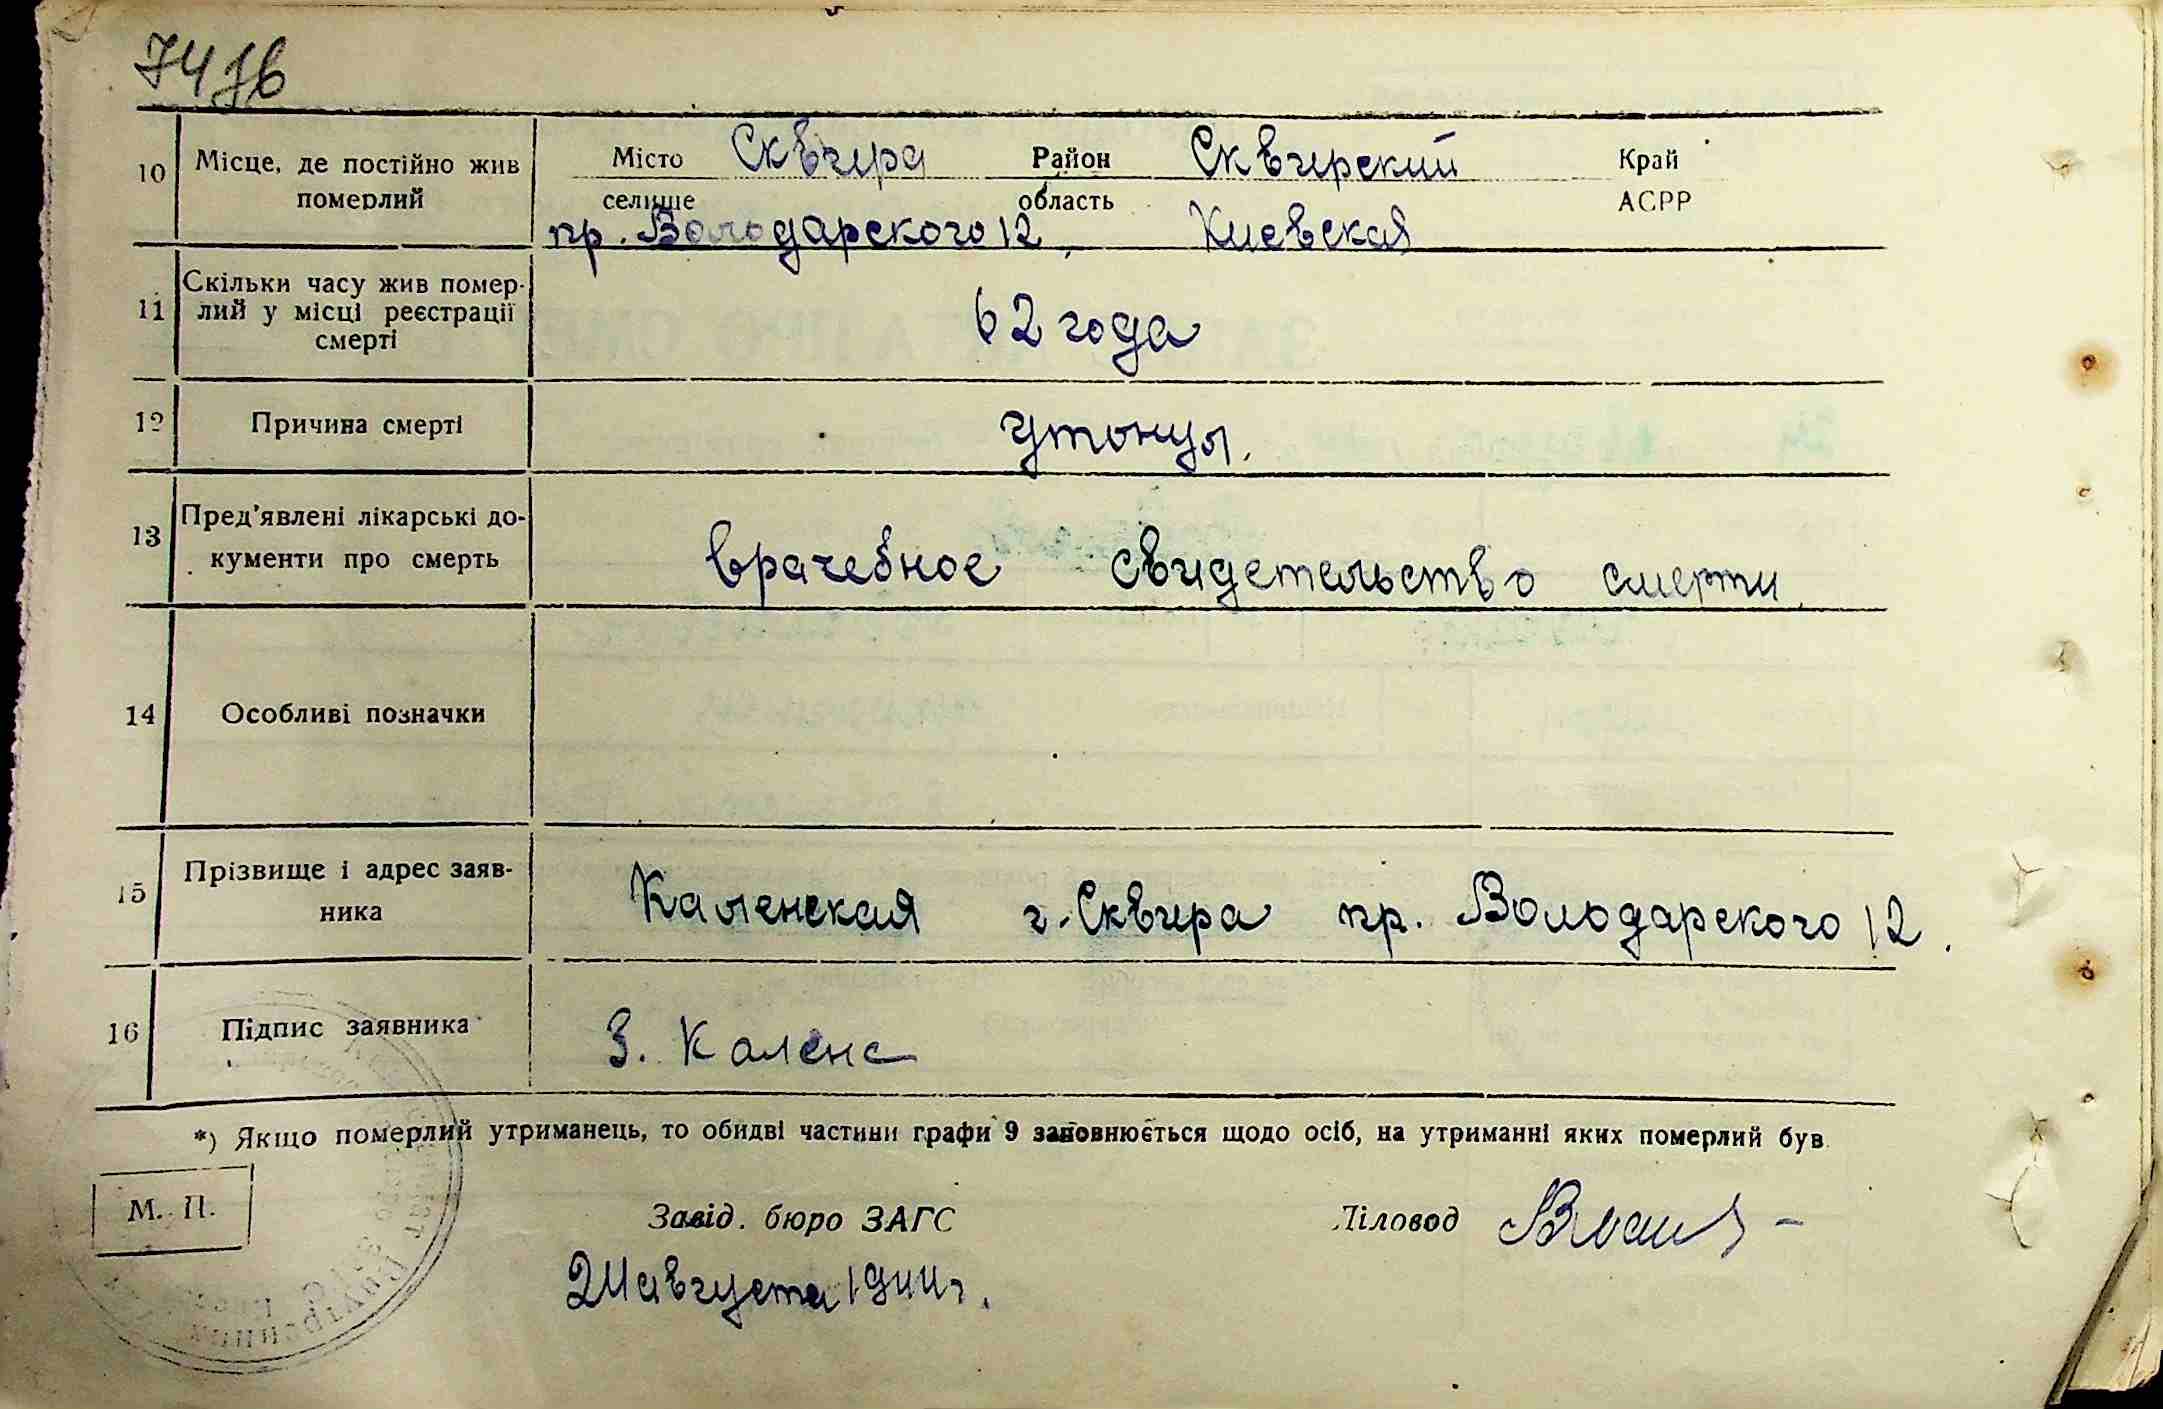 74 зв
10 Місце, де постійно жив померлий
Місто Сквира Район Сквирский Край
селище область АСРР
пр. Володарского 12, Киевская
11 Скільки часу жив помер-
лий у місці реєстрації
смерті
62 года
12 Причина смерті
утонул.
13 Пред'явлені лікарські до-
кументи про смерть
врачебное свидетельство смерти.
14 Особливі позначки
15 Прізвище і адрес заяв-
ника
Каленская г. Сквира пр. Володарского 12.
16 Підпис заявника
З. Каленс
*) Якщо померлий утриманець, то обидві частини графи 9 заповнюється щодо осіб, на утриманні яких померлий був
М. П.
Завід. бюро ЗАГС Діловод
24 августа 1944 г.